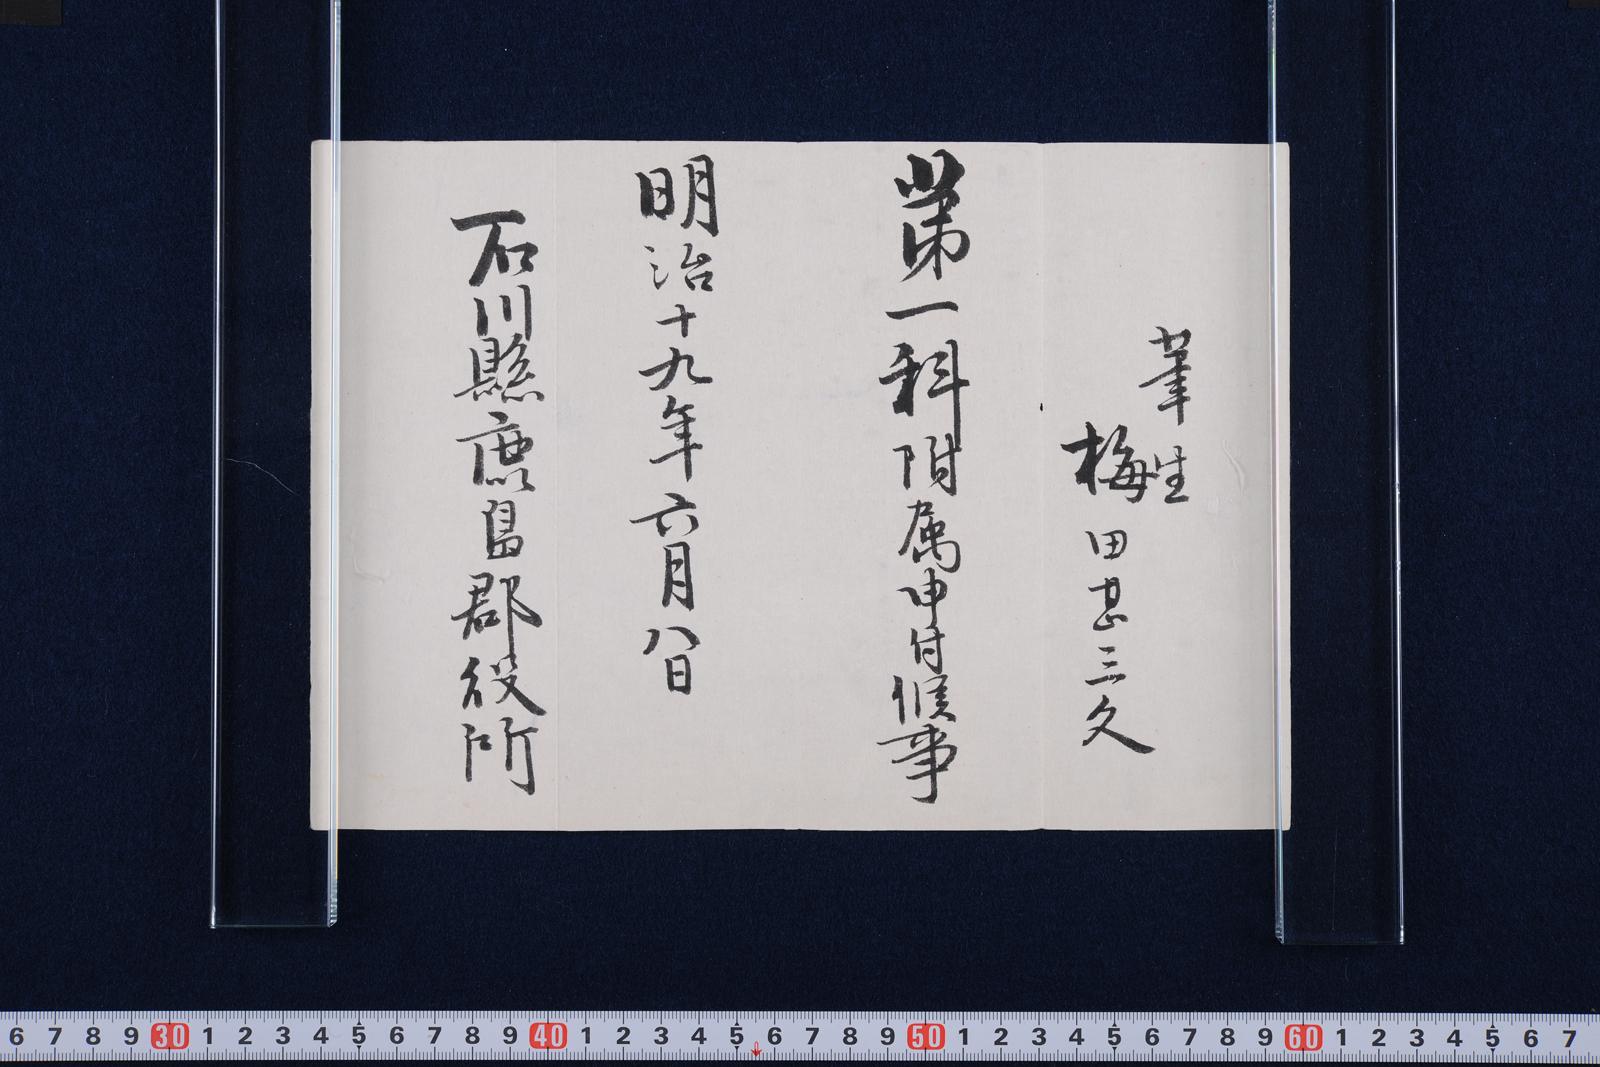 筆生
梅田甚三久
第一科附属申付候事
明治十九年六月八日
石川縣鹿島郡役所
6 7 8 9 30 1 2 3 4 5 6 7 8 9 40 1 2 3 4 5 6 7 8 9 50 1 2 3 4 5 6 7 8 9 60 1 2 3 4 5 6 7